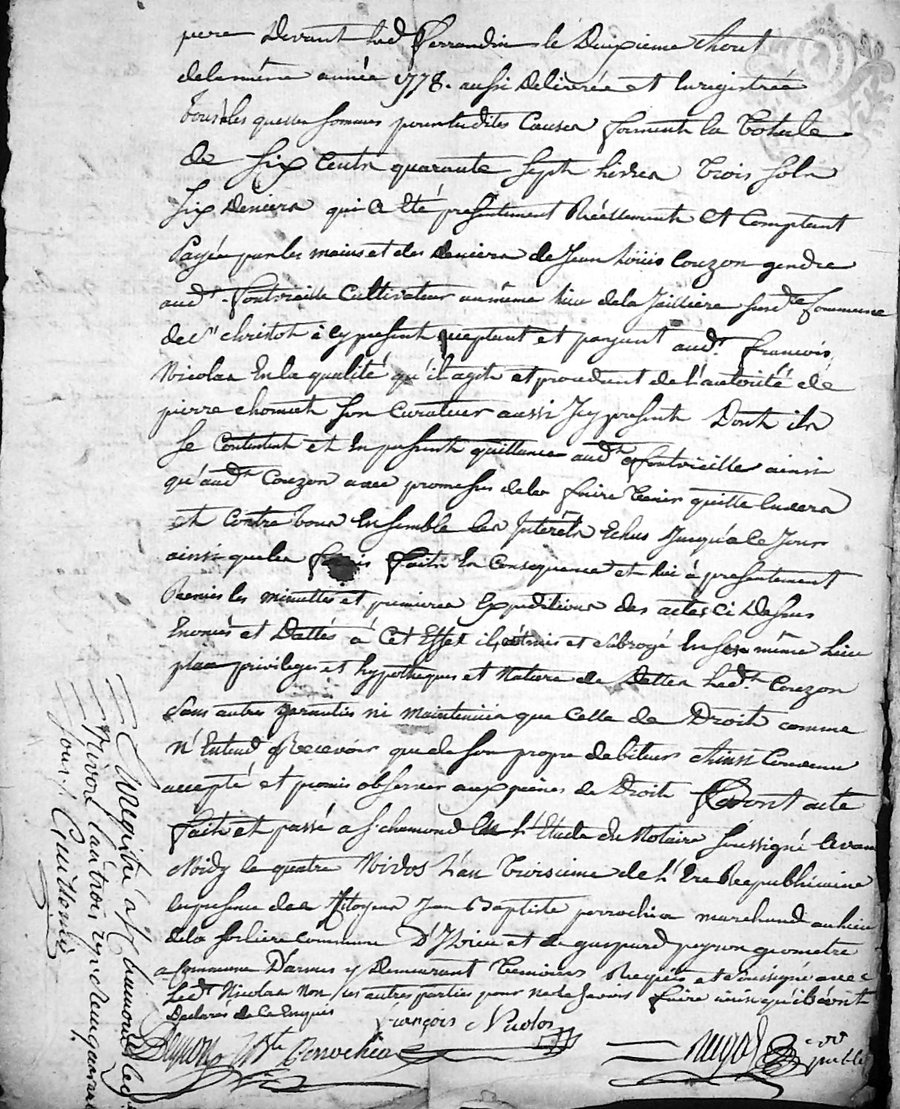 pere devant led. Ferrandin le Deuxieme Aout
de la même année 1778. aussi delivrée et Enregistrée
Toutes les quelles sommes pour susdites Causes forment la Totale
de Six Cents quarante Sept livres Trois Sols
Six Deniers qui a Eté présentement Réellement Et Comptant
Payée par les mains et des deniers de Jean Louis Couzon gendre
aud.t Fontvieille Cultivateur au même lieu de la Jaillière susd.e Commune
de c.n christot à cy présent acceptant et payant aud.t François
Nicolas En la qualité qu'il agit et procedant de l'autorité de
pierre chomat son Curateur aussi Icy présent Dont ils
se Contentent et En passent quittance aud.t Fontvieille ainsi
qu'aud.t Couzon avec promesse de le faire tenir quitte Envers
et Contre tous Ensemble les Intérêts Echus Jusqu'à ce Jour
ainsi que les frais faits En Consequence et lui à présentement
Remis les minutes et premieres Expeditions des actes ci Dessus
Enoncés et Dattés à Cet Effet il a mis et subrogé En son même Lieu
place privileges et hypotheques et Nature de Dettes led.t Couzon
sans autre garantie ni maintenüe que Celle de Droit comme
N'Entend Recevoir que de son propre debiteur Ainsi Convenu
accepté et promis observer aux peines de Droit Dont acte
fait et passé a S.t chamond En l'Etude du Notaire soussigné avant
Midy le quatre Nivos l'an Troisieme de l'Ere Republicaine
En presence des Citoyens Jean Baptiste perrochia marchand au lieu
de la Sorliere commune D'Izieu et de gaspard peyron geometre
a Commune D'armes y Demeurant Temoins Requis et soussignés avec
led.t Nicolas Non les autres parties pour ne le savoir faire ainsi qu'ils ont
Declaré de ce Enquis
françois Nicolas
Peyron J Bte Perrochia
not
public
Enregistré a S.t chamond le
Nivos l'an trois reçu
Sous